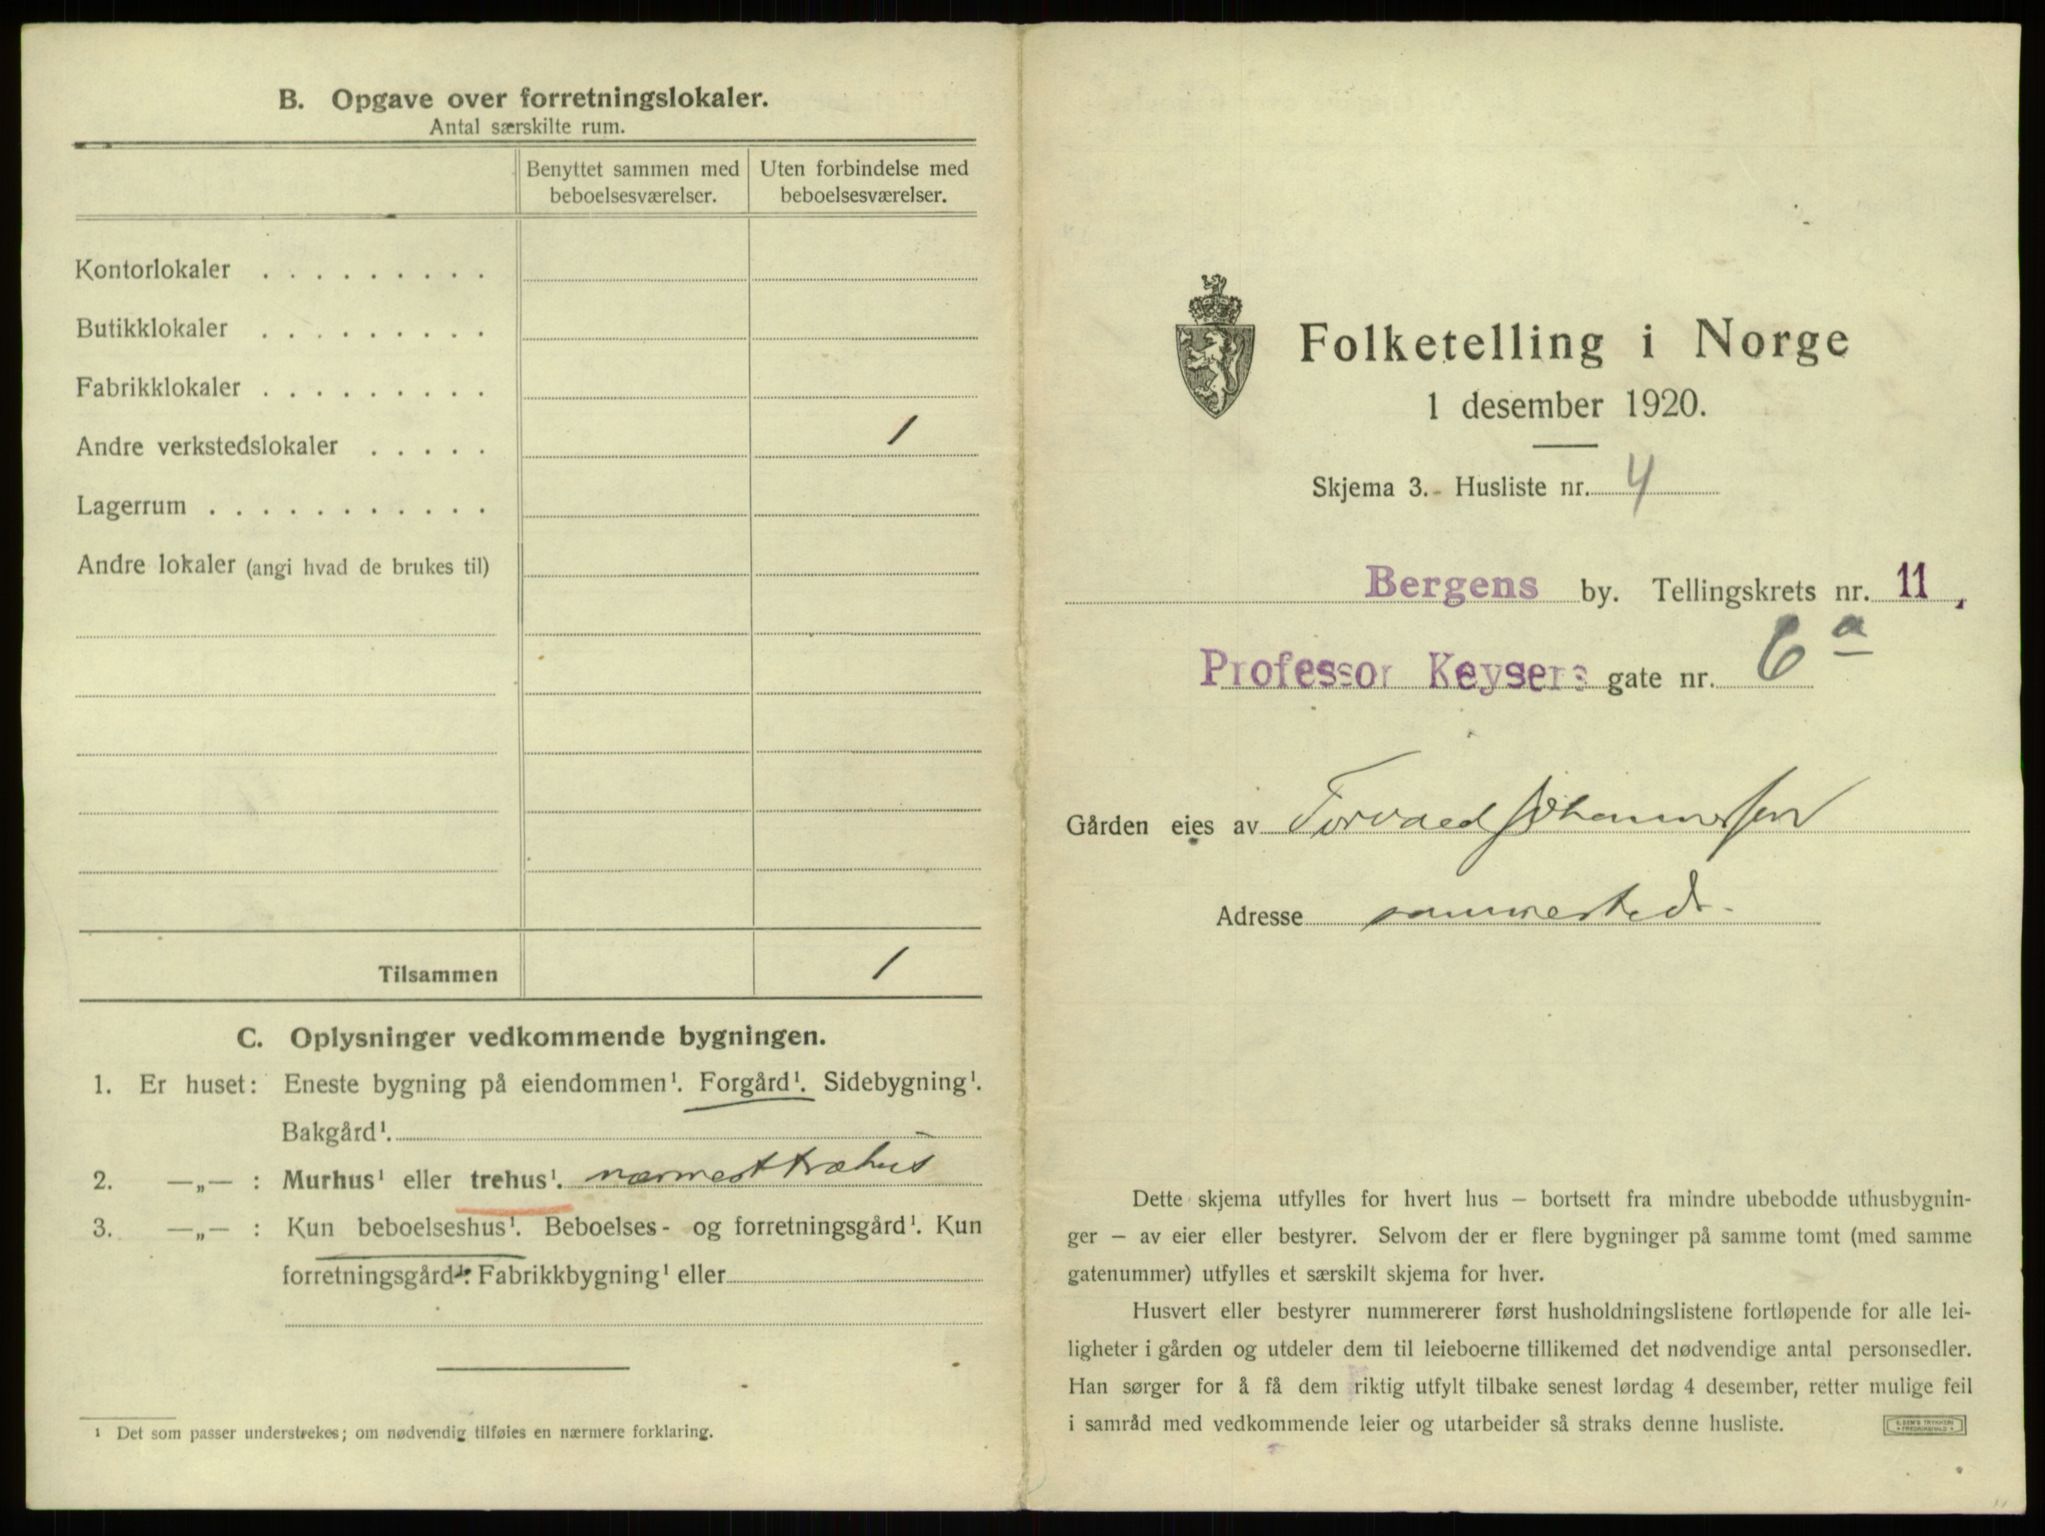 B. Opgave over forretningslokaler.
Antal særskilte rum.
Benyttet sammen med beboelsesværelser.
Uten forbindelse med beboelsesværelser.
Kontorlokaler . . . . . . . . .
Butikklokaler . . . . . . . . .
Fabrikklokaler . . . . . . . . .
Andre verkstedslokaler . . . . . 1
Lagerrum . . . . . . . . . . .
Andre lokaler (angi hvad de brukes til)
Tilsammen 1
C. Oplysninger vedkommende bygningen.
1. Er huset: Eneste bygning på eiendommen¹. Forgård¹. Sidebygning¹.
Bakgård¹.
2. —„— : Murhus¹ eller trehus¹. nærmest træhus
3. —„— : Kun beboelseshus¹. Beboelses- og forretningsgård¹. Kun
forretningsgård¹. Fabrikkbygning¹ eller
¹ Det som passer understrekes; om nødvendig tilføies en nærmere forklaring.
Folketelling i Norge
1 desember 1920.
Skjema 3. Husliste nr. 4
Bergens by. Tellingskrets nr. 11,
Professor Keysers gate nr. 6a
Gården eies av Torvald Johannessen
Adresse sammesteds.
Dette skjema utfylles for hvert hus — bortsett fra mindre ubebodde uthusbygnin-
ger — av eier eller bestyrer. Selvom der er flere bygninger på samme tomt (med samme
gatenummer) utfylles et særskilt skjema for hver.
Husvert eller bestyrer nummererer først husholdningslistene fortløpende for alle lei-
ligheter i gården og utdeler dem til leieboerne tillikemed det nødvendige antal personsedler.
Han sørger for å få dem riktig utfylt tilbake senest lørdag 4 desember, retter mulige feil
i samråd med vedkommende leier og utarbeider så straks denne husliste.